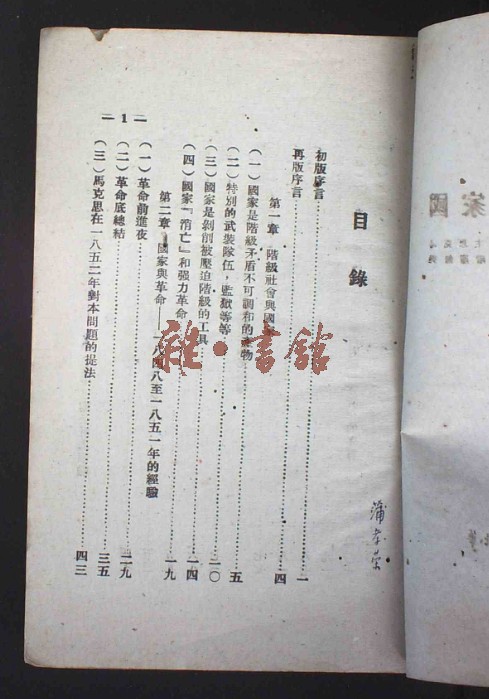 國家
目錄
初版序言……一
再版序言……四
第一章 階級社會與國家
(一)國家是階級矛盾不可調和的產物……五
(二)特別的武裝隊伍,監獄等等……一〇
(三)國家是剝削被壓迫階級的工具……一四
(四)國家「消亡」和强力革命……一九
第二章 國家與革命——一八四八至一八五一年的經驗
(一)革命前進夜……二九
(二)革命底總結……三五
(三)馬克思在一八五二年對本問題的提法……四三
— 1 —
雜·書館